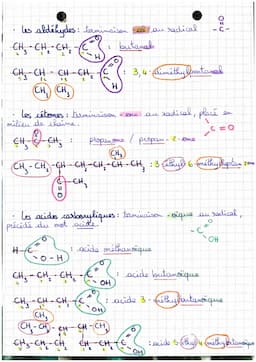 - Les aldéhydes : terminaison -al au radical
O
-C-
CH3 - CH2 - CH2 - C O H : butanal
CH3 - CH - CH - CH2 - C O H : 3,4-diméthyl
CH3 CH3
- Les cétones : terminaison -one au radical, placé en
milieu de chaîne.
C = O
CH3 - C - CH3 : propanone / propan-2-one
O
CH3
CH3 - CH2 - CH - CH2 - CH2 - CH - CH3 : 3-éthyl-6-méthylheptan-2-one
C - CH3
O
- Les acides carboxyliques : terminaison -oïque au radical,
précédé du mot acide.
- C O OH
H - C O O - H : acide méthanoïque
CH3 - CH2 - CH2 - C O OH : acide butanoïque
CH3 - CH - CH2 - C O OH : acide 3-méthylbutanoïque
CH3
CH3 - CH2 CH - CH3
CH3 - CH2 - CH - CH - CH2 - C O OH : acide 3-éthyl-4-méthyl